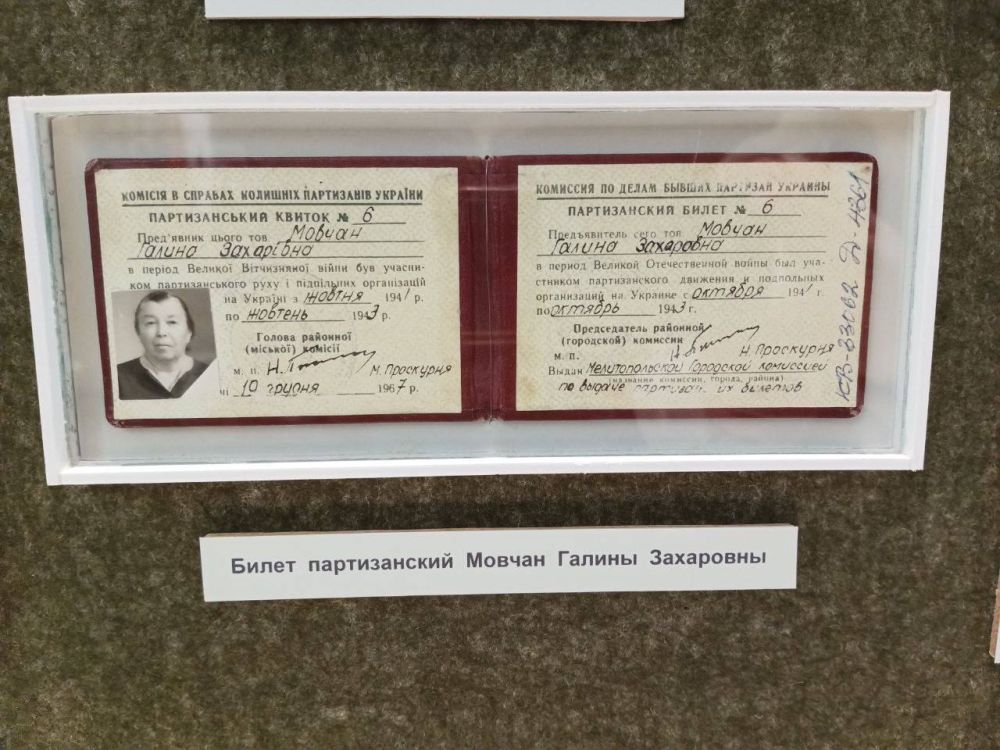 КОМІСІЯ В СПРАВАХ КОЛИШНІХ ПАРТИЗАНІВ УКРАЇНИ
ПАРТИЗАНСЬКИЙ КВИТОК № 6
Пред'явник цього тов Мовчан
Галина Захарівна
в період Великої Вітчизняної війни був учасни-
ком партизанського руху і підпільних організацій
на Україні з жовтня 1941 р.
по жовтень 1943 р.
Голова районної
(міської) комісії
м. п. Н. Проскурня
10 грудня 1967 р.
КОМИССИЯ ПО ДЕЛАМ БЫВШИХ ПАРТИЗАН УКРАИНЫ
ПАРТИЗАНСКИЙ БИЛЕТ № 6
Предъявитель сего тов Мовчан
Галина Захаровна
в период Великой Отечественной войны был учас-
стником партизанского движения и подпольных
организаций на Украине с октября 1941 г.
по октябрь 1943 г.
Председатель районной
(городской) комиссии
м. п. Н Проскурня
Выдан Мелитопольской Городской комиссией
(название комиссии, города, района)
по выдаче партизанских билетов
КВ-33062 Д-4361
Билет партизанский Мовчан Галины Захаровны